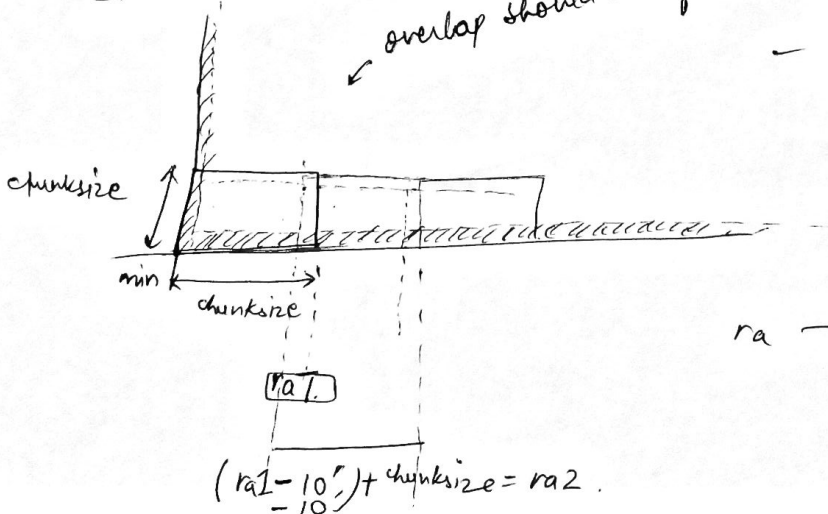 overlap should
chunksize
min
chunksize
ra
ra 1.
(ra1 - 10") + chunksize = ra2.
- 10